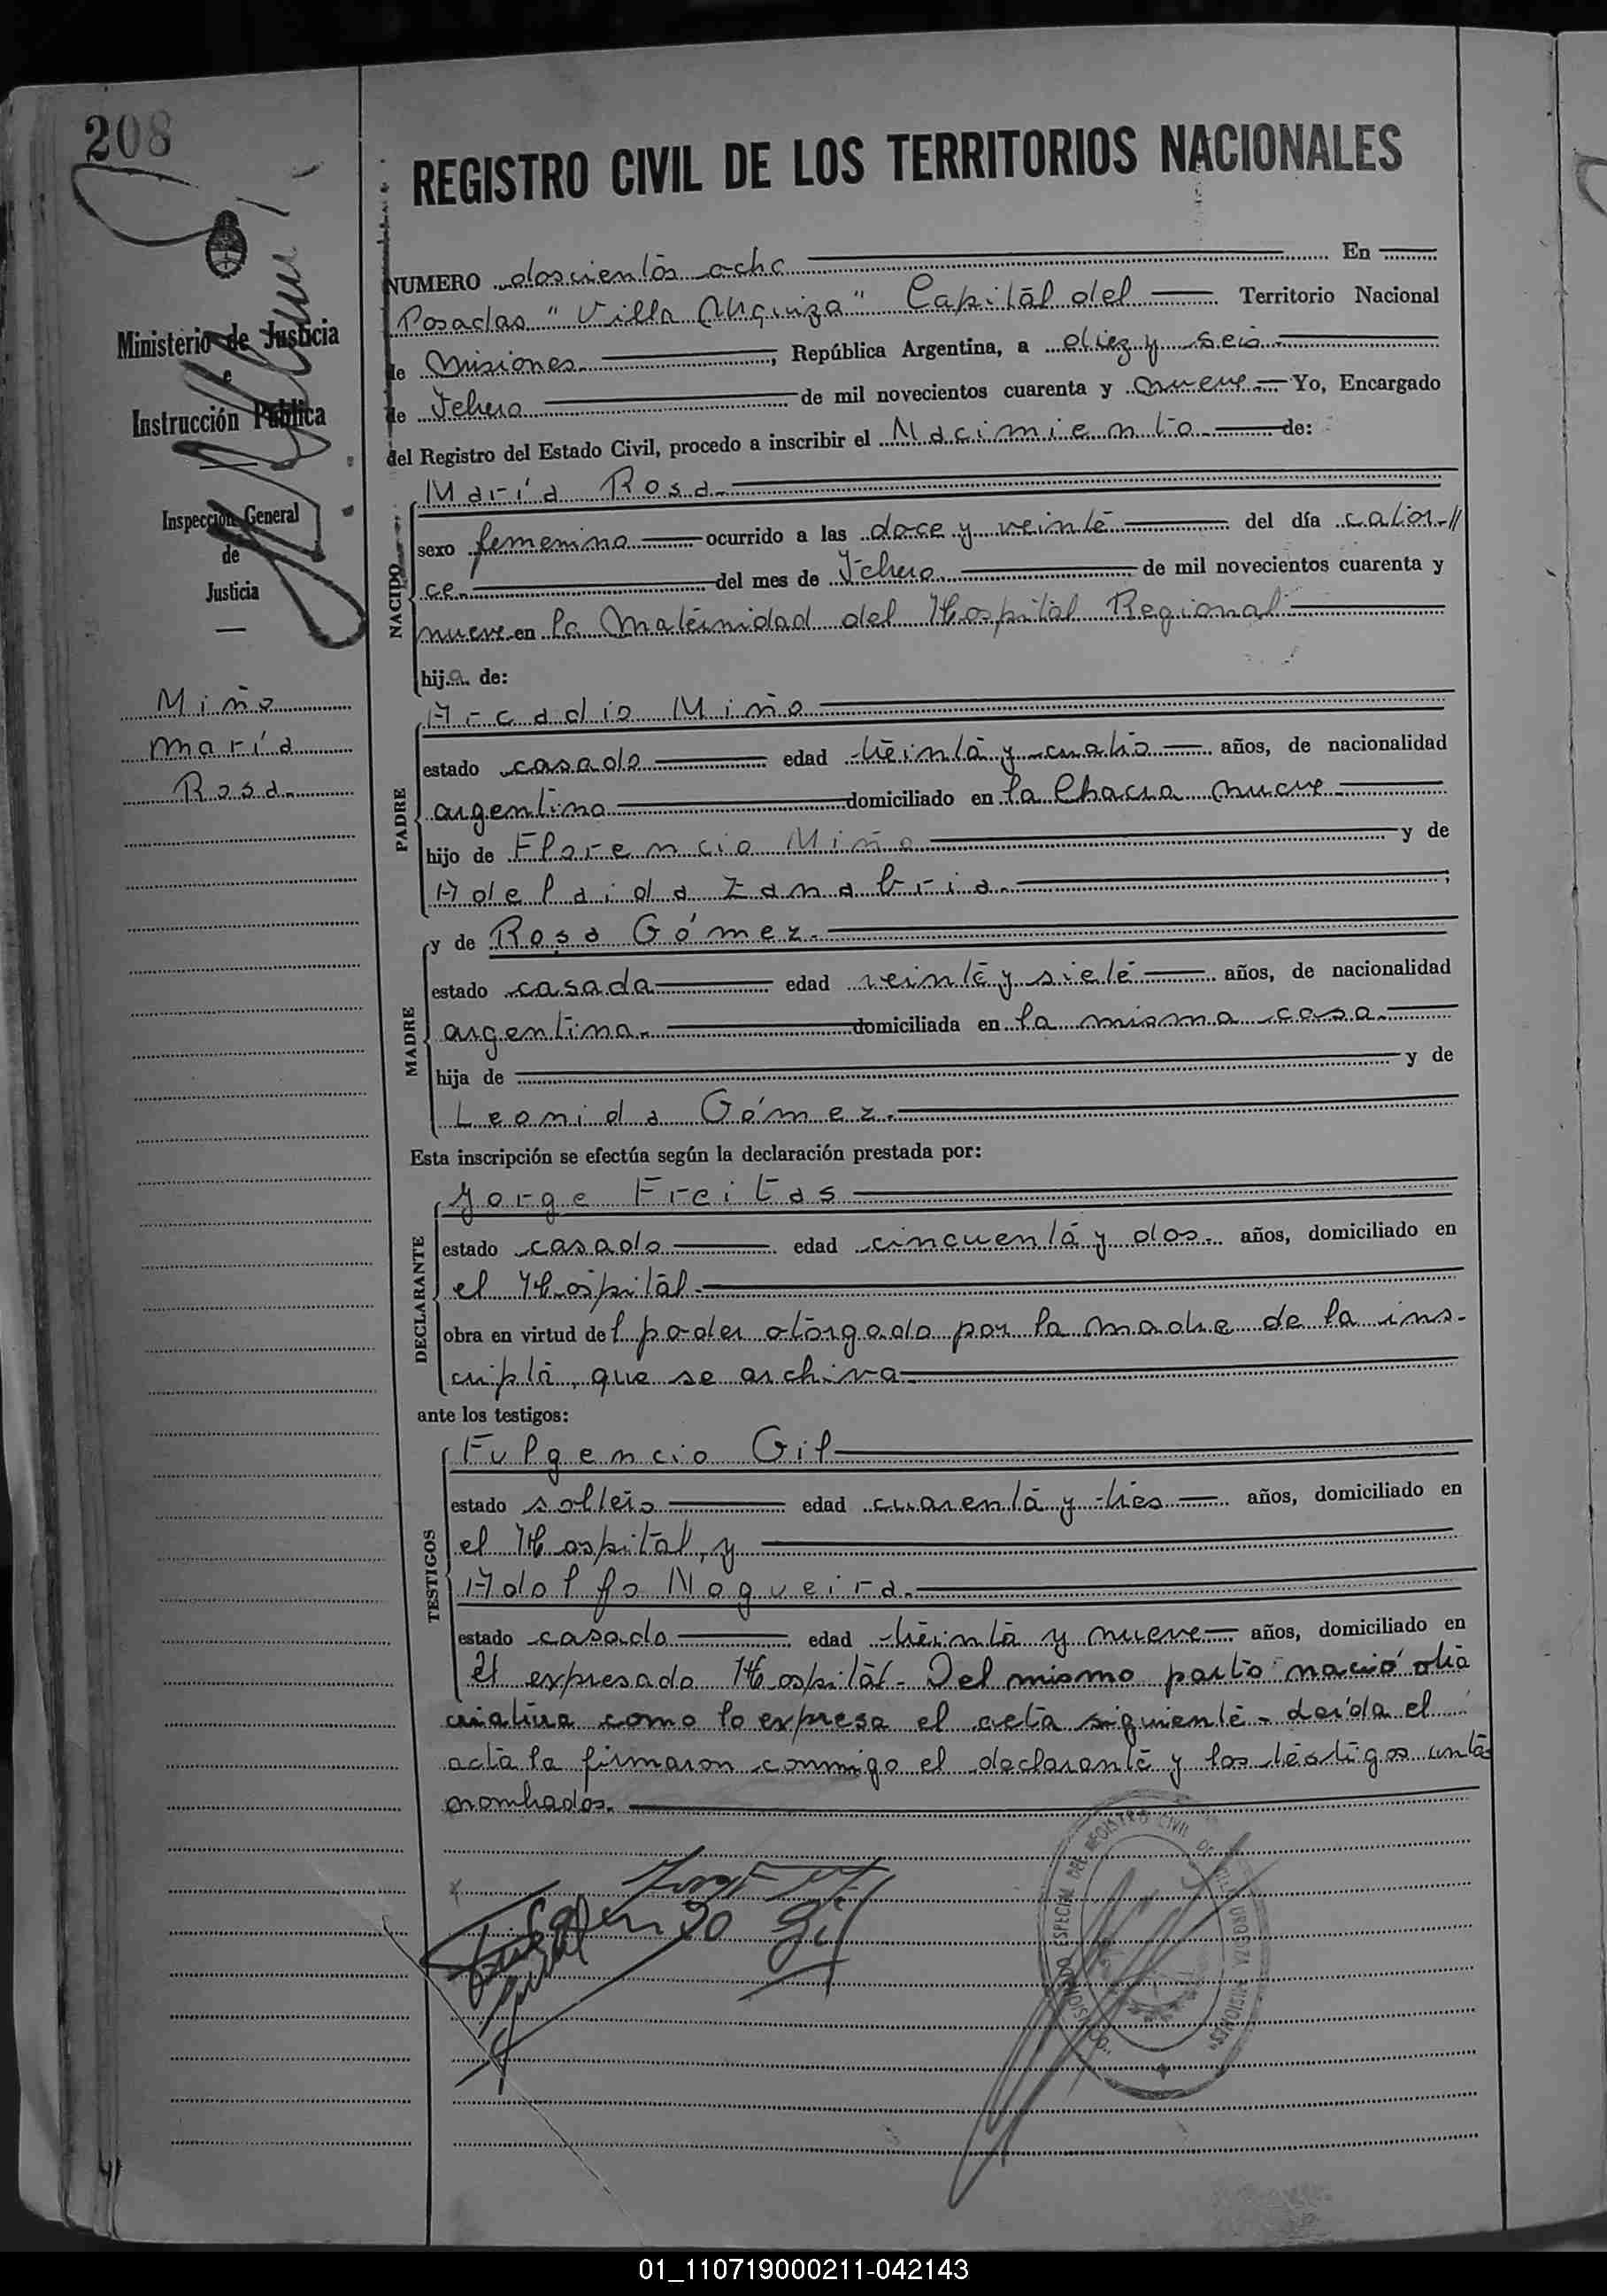 208
REGISTRO CIVIL DE LOS TERRITORIOS NACIONALES
NUMERO doscientos ocho En
Posadas "Villa Urquiza" Capital del Territorio Nacional
de Misiones, República Argentina, a diez y seis
de Febrero de mil novecientos cuarenta y nueve Yo, Encargado
del Registro del Estado Civil, procedo a inscribir el Nacimiento de:
Ministerio de Justicia
e
Instrucción Pública
Inspección General
de
Justicia
Miño
María
Rosa.
NACIDO
María Rosa.
sexo femenino ocurrido a las doce y veinte del día cator-//
ce. del mes de Febrero de mil novecientos cuarenta y
nueve en la Maternidad del Hospital Regional
hija de:
PADRE
Arcadio Miño
estado casado edad treinta y cuatro años, de nacionalidad
argentino domiciliado en la Chacra nueve
hijo de Florencio Miño y de
Adelaida Zanabria. ;
MADRE
y de Rosa Gómez.
estado casada edad veinte y siete años, de nacionalidad
argentina. domiciliada en la misma casa.
hija de y de
Leonida Gómez.
Esta inscripción se efectúa según la declaración prestada por:
DECLARANTE
Jorge Freitas
estado casado edad cincuenta y dos. años, domiciliado en
el Hospital.
obra en virtud del poder otorgado por la madre de la ins-
cripta, que se archiva.
ante los testigos:
TESTIGOS
Fulgencio Gil
estado soltero edad cuarenta y tres años, domiciliado en
el Hospital, y
Adolfo Nogueira.
estado casado edad treinta y nueve años, domiciliado en
el expresado Hospital. Del mismo parto nació otra
criatura como lo expresa el acta siguiente. Leída el
acta la firmaron conmigo el declarante y los testigos antes
nombrados.
Fulgencio Gil
COMISIONADO ESPECIAL DEL REGISTRO CIVIL DE "VILLA URQUIZA" MISIONES
01_110719000211-042143